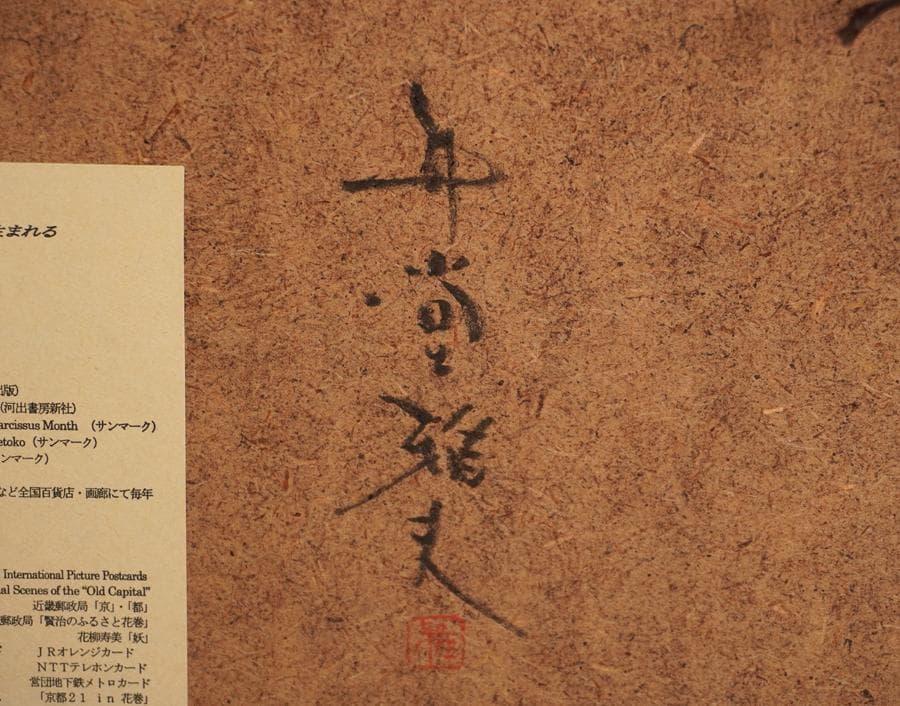 生まれる
出版)
(河出書房新社)
arcissus Month (サンマーク)
etoko (サンマーク)
ンマーク)
など全国百貨店・画廊にて毎年
International Picture Postcards
al Scenes of the "Old Capital"
近畿郵政局「京」・「都」
郵政局「賢治のふるさと花巻」
花柳寿美「妖」
ＪＲオレンジカード
ＮＴＴテレホンカード
営団地下鉄メトロカード
「京都２１ ｉｎ 花巻」
井堂雅夫